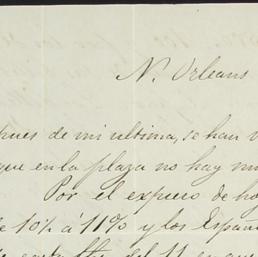 N. Orleans
pues de mi ultima, se han
que en la plaza no hay
Por el expreso de
de 10½ á 11% y los Españ
del 11